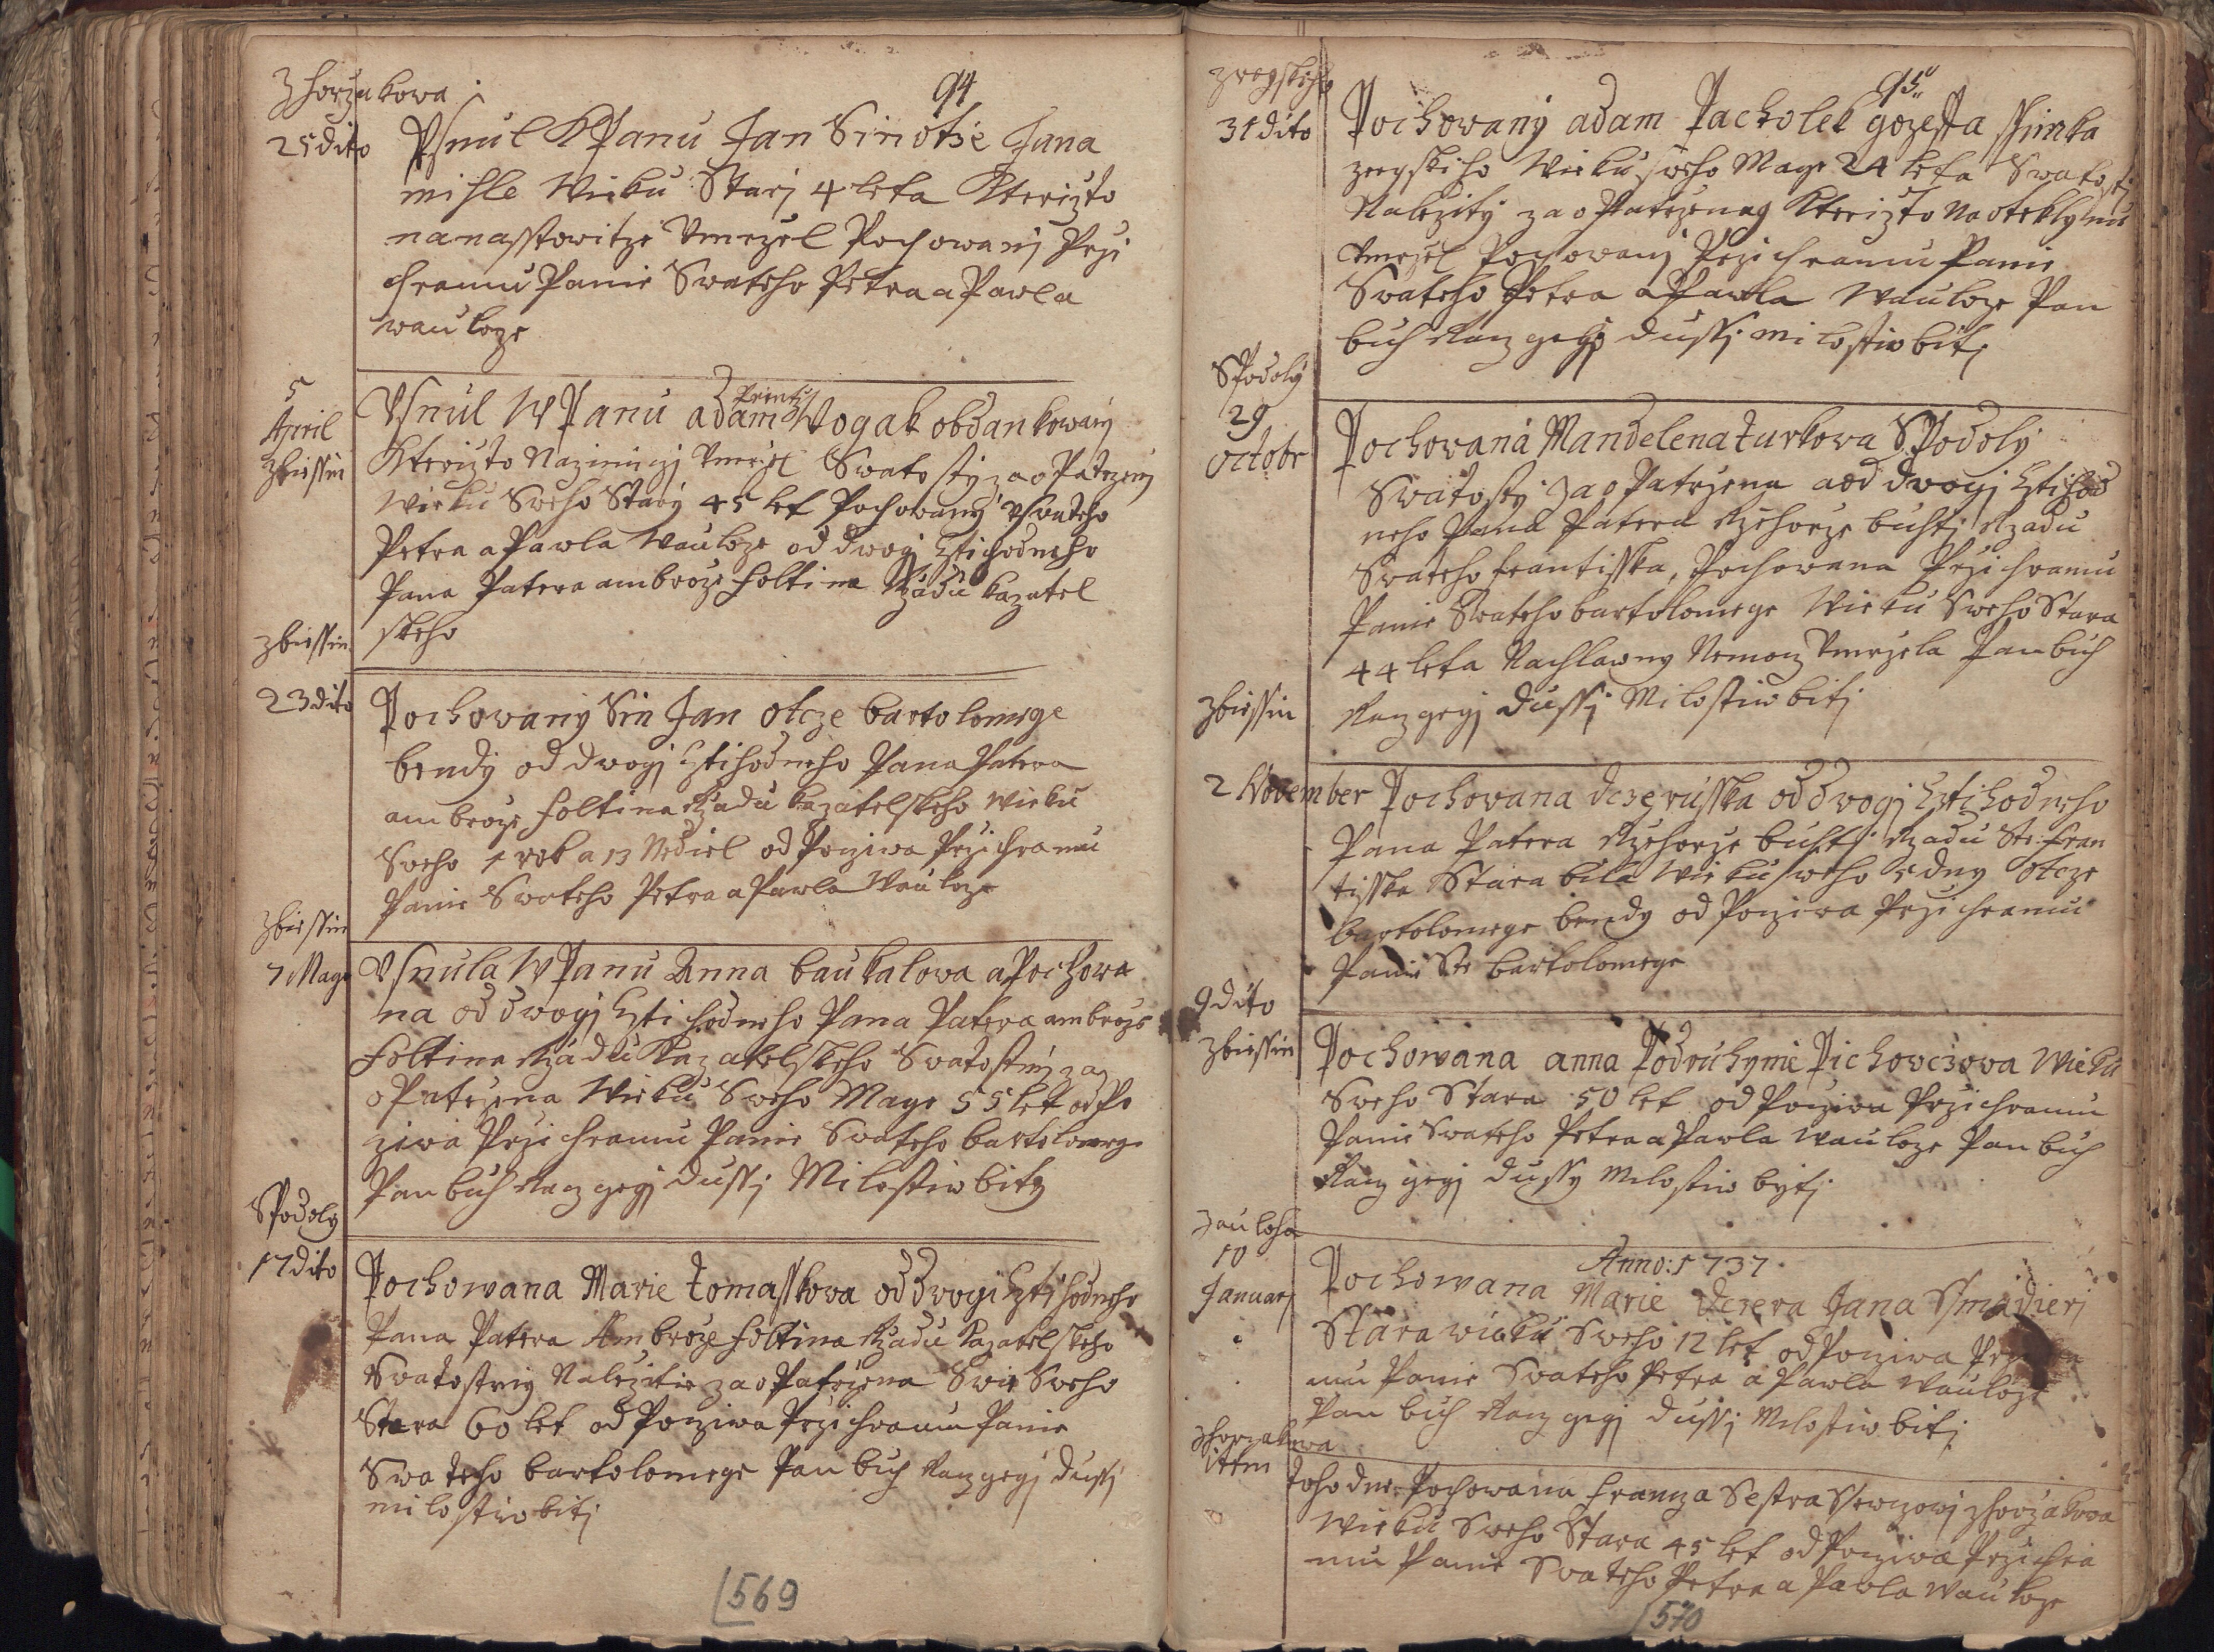 Z horzakowa
94
25 dito
Vsnul KPanu Jan Sin otze Jana
misle Wieku Starj 4 leta Kterizto
na nasstowitze Vmrzel Pochowanj Przi
chramu Panie Swateho Petra a Pawla
wauloze
5
April
zbiessin
Printz
Vsnul WPanu adam Wogak obdankowany
Kterizto Nazimnizj Vmrzel Swatostj zaopatrzenj
Wieku Sweho Stary 45 let Pochowany Vswateho
Petra a Pawla Wauloze od dwogj Cztihodneho
Pana Patera ambroze foltina Rzádu kazatel
skeho
zbiessin
23 dito
Pochowany Sin Jan otcze bartolomege
bendy od dwogj Cztihodneho Pana Patera
ambroze foltina Rzadu kazatelskeho Wieku
Sweho 1 rok a 13 Nediel od Poziwa Przi chramu
Panie Swateho Petra a Pawla Wauloze
zbiessin
7 Mage
Vsnula WPanu Anna baukalowa a Pochowa
na od dwogj Czti hodneho Pana Patera ambroze
foltina Rzádu Kazatelskeho Swatostmj za
oPatrzena Wieku Sweho Mage 55 let odPo
ziwa Przi chramu Panie Swateho bartolomege
Pan buh Racz gegj dussj Milostiw bitj
SPodoly
17 dito
Pochowana Marie tomasskowa od dwogj Cztihodneho
Pana Patera Ambroze foltina Rzadu kazatelskeho
Swatostmj Nalezitie zaoPatrzena Swie Sweho
Stara 60 let od Poziwa Przi chramu Panie
Swateho bartolomege Pan buh Racz gegj dussj
milostiw bitj
569
zregskeho
95
31 dito
Pochowaný adam Pacholek gozeffa ssimka
zregskiho Wieku sweho Mage 24 leta Swatostj
Nalezitý zaoPatrzenag Kterizto Na oteklynu
Vmrzel Pochowanj Przi chramu Panie
Swateho Petra a Pawla Wauloze Pan
buh Racz gehj dussj milostiw bitj
SPodolý
29
octobr
Pochowaná Mandelena turkowa SPodolý
Swatostý zaoPatrzena a od dwogj Cztihod
neho Pana Patera Rzehorze buhtj Rzadu
Swateho frantisska, Pochowana Przi chramu
Panie Swateho bartolomege Wieku Sweho Stara
44 leta Nachlawny Nemocz Vmrzela Pan buh
Racz gegj dussj Milostiw bitj
zbiessin
2 November
Pochowana dczeruska od dwogj Cztihodneho
Pana Patera Rzehorze buhtj Rzadu Ste: fran
tisska Stara bila Wieku sweho 5 dny otcze
bartolomege bendy od Poziwa Przi chramu
Panie Ste bartolomege
9 dito
zbiessin
Pochowana anna Podruhynie Pichowczowa Wieku
Sweho Stara 50 let od Poziwa Przi chramu
Panie Swateho Petra a Pawla Wauloze Pan buh
Racz gegj dussy Milostiw bytj
zauloha
10
Januarj
Anno: 1737
Pochowana Marie dczera Jana Smidierj
Stara wieku Sweho 12 let od Poziwa
mu Panie Swateho Petra a Pawla Wauloze
Pan buh Racz gegj dussj Milostiw bitj
zhorzakowa
ittem
toho dne Pochowana francza Sestra zhorzakowa
Wieku Sweho Stara 45 let od Poziwa Przi chra
mu Panie Swateho Petra a Pawla Wauloze
570